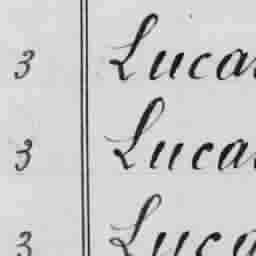 3 Lucas
3 Lucas
3 Luca